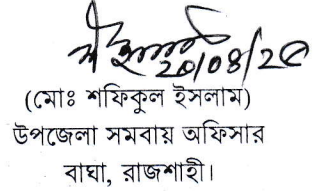 20/08/20
(মোঃ শফিকুল ইসলাম)
উপজেলা সমবায় অফিসার
বাঘা, রাজশাহী।